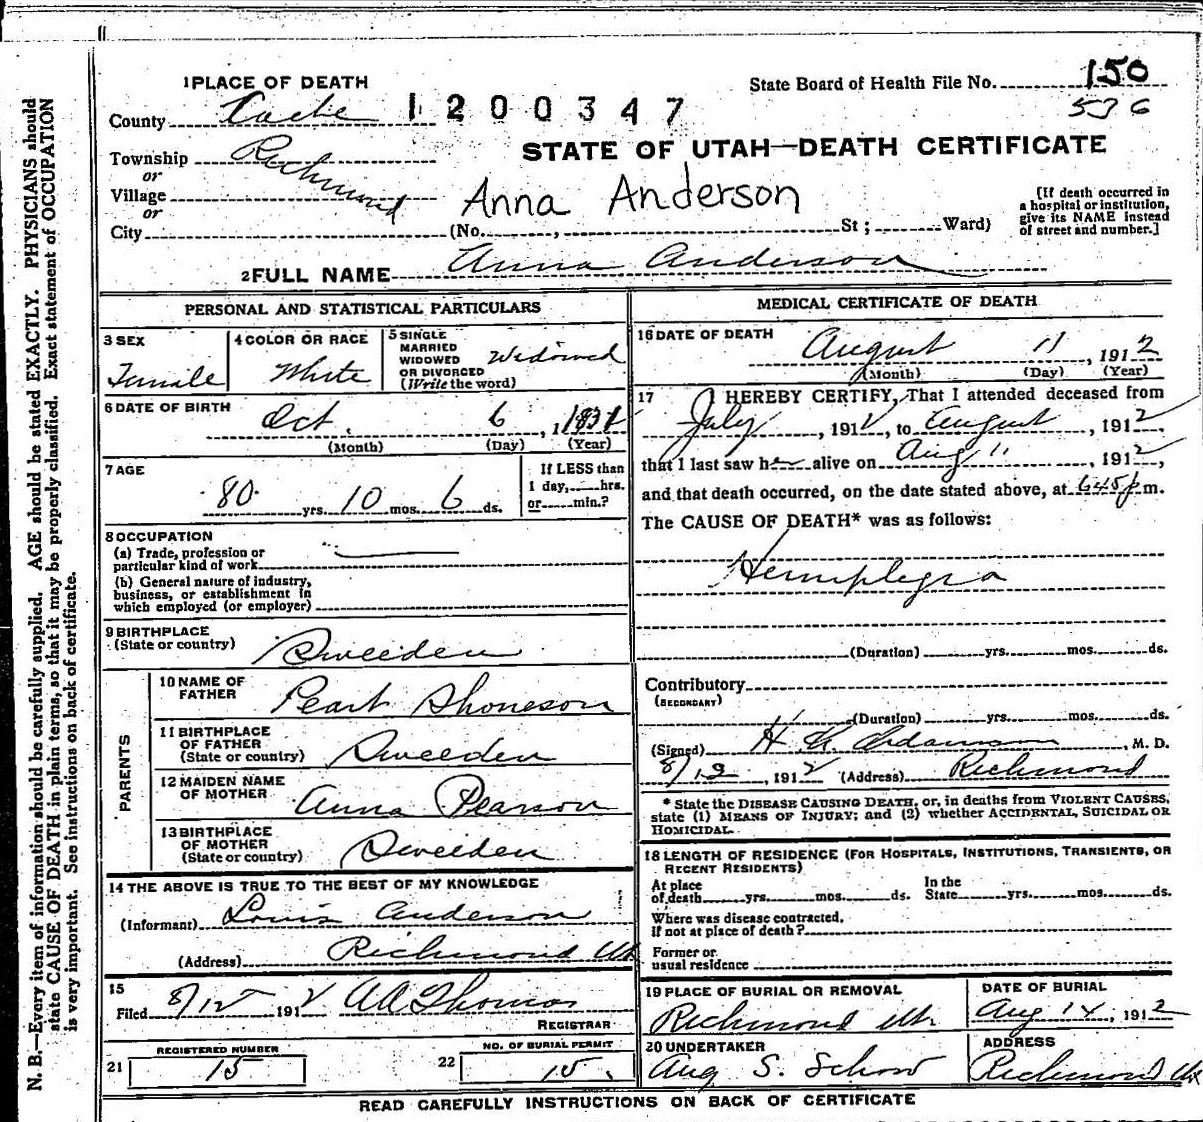 1 PLACE OF DEATH
State Board of Health File No. 150
536
County Cache 1200347
STATE OF UTAH—DEATH CERTIFICATE
Township Richmond
or
Village
or
City
Anna Anderson
(No. , St ; Ward)
[If death occurred in
a hospital or institution,
give its NAME instead
of street and number.]
2 FULL NAME Anna Anderson
PERSONAL AND STATISTICAL PARTICULARS
3 SEX
Female
4 COLOR OR RACE
White
5 SINGLE
MARRIED
WIDOWED
OR DIVORCED
(Write the word)
Widowed
6 DATE OF BIRTH
Oct. 6, 1831
(Month) (Day) (Year)
7 AGE
80 yrs. 10 mos. 6 ds.
If LESS than
1 day, hrs.
or min.?
8 OCCUPATION
(a) Trade, profession or
particular kind of work
(b) General nature of industry,
business, or establishment in
which employed (or employer)
9 BIRTHPLACE
(State or country)
Sweeden
PARENTS
10 NAME OF
FATHER
Peart Shoneson
11 BIRTHPLACE
OF FATHER
(State or country)
Sweeden
12 MAIDEN NAME
OF MOTHER
Anna Pearson
13 BIRTHPLACE
OF MOTHER
(State or country)
Sweeden
14 THE ABOVE IS TRUE TO THE BEST OF MY KNOWLEDGE
(Informant) Louis Anderson
(Address) Richmond Ut
15
Filed 8/12 1912 AA Thomas
REGISTRAR
21
REGISTERED NUMBER
15
22
NO. OF BURIAL PERMIT
15
MEDICAL CERTIFICATE OF DEATH
16 DATE OF DEATH
August 11, 1912
(Month) (Day) (Year)
17 I HEREBY CERTIFY, That I attended deceased from
July, 1912, to August, 1912,
that I last saw her alive on Aug 11, 1912,
and that death occurred, on the date stated above, at 6 45 p m.
The CAUSE OF DEATH* was as follows:
Hemiplegia
(Duration) yrs. mos. ds.
Contributory
(SECONDARY)
(Duration) yrs. mos. ds.
(Signed) Adamson, M. D.
8/12, 1912 (Address) Richmond
* State the DISEASE CAUSING DEATH, or, in deaths from VIOLENT CAUSES,
state (1) MEANS OF INJURY; and (2) whether ACCIDENTAL, SUICIDAL OR
HOMICIDAL.
18 LENGTH OF RESIDENCE (FOR HOSPITALS, INSTITUTIONS, TRANSIENTS, OR
RECENT RESIDENTS)
At place
of death yrs. mos. ds.
In the
State yrs. mos. ds.
Where was disease contracted,
if not at place of death?
Former or
usual residence
19 PLACE OF BURIAL OR REMOVAL
Richmond Ut.
DATE OF BURIAL
Aug 14, 1912
20 UNDERTAKER
Aug S. Schow
ADDRESS
Richmond Ut
READ CAREFULLY INSTRUCTIONS ON BACK OF CERTIFICATE
N. B.—Every item of information should be carefully supplied. AGE should be stated EXACTLY. PHYSICIANS should
state CAUSE OF DEATH in plain terms, so that it may be properly classified. Exact statement of OCCUPATION
is very important. See instructions on back of certificate.